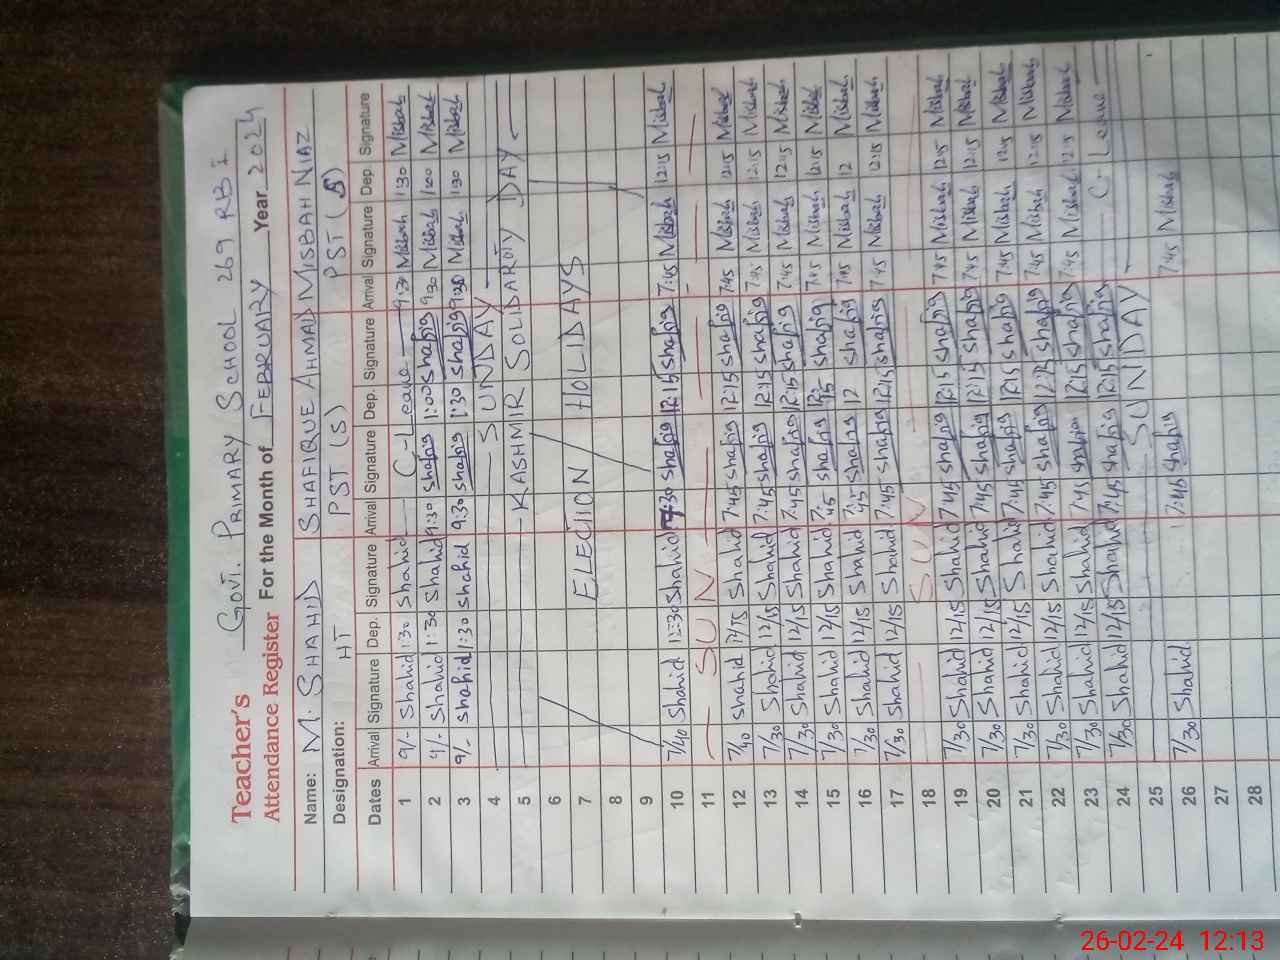 Teacher's GOVT. PRIMARY SCHOOL 269 RB I
Attendance Register For the Month of FEBRUARY Year 2024
Name: M. SHAHID SHAFIQUE AHMAD MISBAH NIAZ
Designation: HT PST (S) PST (S)
Dates Arrival Signature Dep. Signature Arrival Signature Dep. Signature Arrival Signature Dep. Signature
1 9/- Shahid 1:30 Shahid C-Leave 9:30 Misbah 1:30 Misbah
2 9/- Shahid 1:30 Shahid 9:30 Shafiq 1:00 Shafiq 9:30 Misbah 1:00 Misbah
3 9/- Shahid 1:30 Shahid 9:30 Shafiq 1:30 Shafiq 9:30 Misbah 1:30 Misbah
4 SUNDAY
5 KASHMIR SOLIDAROTY DAY
6
7 ELECTION HOLIDAYS
8
9
10 7/40 Shahid 12:30 Shahid 7:30 Shafiq 12:15 Shafiq 7:45 Misbah 12:15 Misbah
11 SUN
12 7/40 Shahid 12/15 Shahid 7:45 Shafiq 12:15 Shafiq 7:45 Misbah 12:15 Misbah
13 7/30 Shahid 12/15 Shahid 7:45 Shafiq 12:15 Shafiq 7:45 Misbah 12:15 Misbah
14 7/30 Shahid 12/15 Shahid 7:45 Shafiq 12:15 Shafiq 7:45 Misbah 12:15 Misbah
15 7/30 Shahid 12/15 Shahid 7:45 Shafiq 12:15 Shafiq 7:45 Misbah 12:15 Misbah
16 7/30 Shahid 12/15 Shahid 7:45 Shafiq 12 Shafiq 7:45 Misbah 12 Misbah
17 7/30 Shahid 12/15 Shahid 7:45 Shafiq 12:15 Shafiq 7:45 Misbah 12:15 Misbah
18 SUN
19 7/30 Shahid 12/15 Shahid 7:45 Shafiq 12:15 Shafiq 7:45 Misbah 12:15 Misbah
20 7/30 Shahid 12/15 Shahid 7:45 Shafiq 12:15 Shafiq 7:45 Misbah 12:15 Misbah
21 7/30 Shahid 12/15 Shahid 7:45 Shafiq 12:15 Shafiq 7:45 Misbah 12:15 Misbah
22 7/30 Shahid 12/15 Shahid 7:45 Shafiq Shafiq 7:45 Misbah 12:15 Misbah
23 7/30 Shahid 12/15 Shahid 7:45 Shafiq 12:15 Shafiq 7:45 Misbah 12:15 Misbah
24 7/30 Shahid 12/15 Shahid 7:45 Shafiq 12:15 Shafiq C-Leave
25 SUNDAY
26 7/30 Shahid 7:45 Shafiq 7:45 Misbah
27
28
26-02-24 12:13